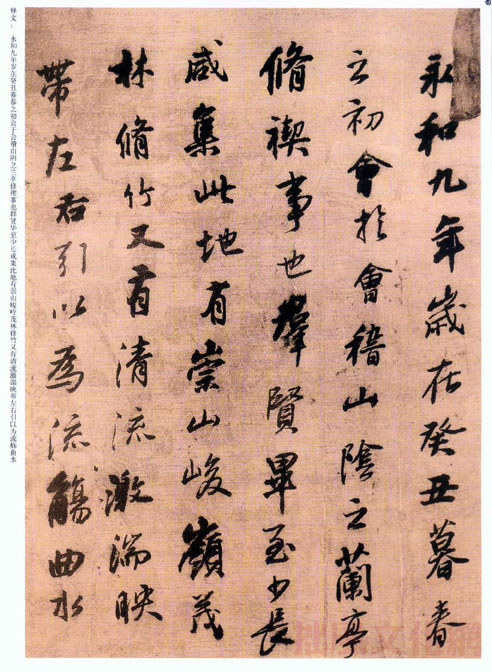 永和九年歲在癸丑暮春
之初會於會稽山陰之蘭亭
脩禊事也羣賢畢至少長
咸集此地有崇山峻嶺茂
林脩竹又有清流激湍映
帶左右引以為流觴曲水
释文： 永和九年岁在癸丑暮春之初会于会稽山阴之兰亭修禊事也群贤毕至少长咸集此地有崇山峻岭茂林修竹又有清流激湍映带左右引以为流觞曲水